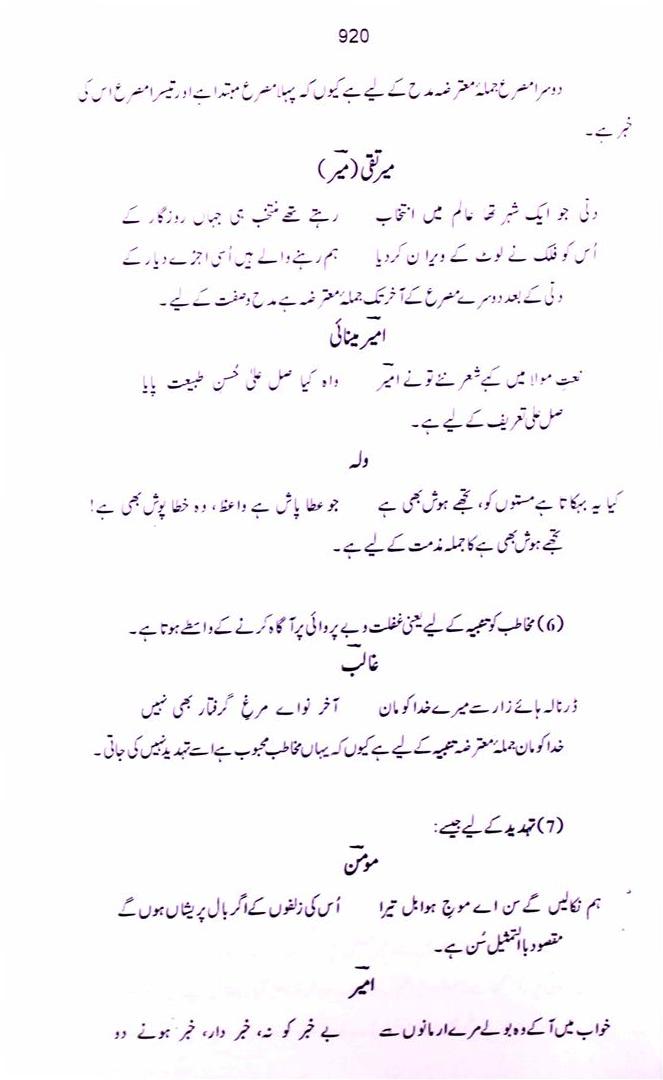 920
دوسرا مصرع جملۂ معترضہ مدح کے لیے ہے کیوں کہ پہلا مصرع مبتدا ہے اور تیسرا مصرع اس کی
خبر ہے۔
میر تقی (میر)
دلّی جو ایک شہر تھا عالم میں انتخاب رہتے تھے منتخب ہی جہاں روزگار کے
اُس کو فلک نے لوٹ کے ویران کردیا ہم رہنے والے ہیں اُسی اجڑے دیار کے
دلّی کے بعد دوسرے مصرع کے آخر تک جملۂ معترضہ ہے مدح وصفت کے لیے۔
امیر مینائی
نعتِ مولا میں کہے شعر نئے تو نے امیر واہ کیا صل علیٰ حُسنِ طبیعت پایا
صل علی تعریف کے لیے ہے۔
ولہ
کیا یہ بہکاتا ہے مستوں کو، تجھے ہوش بھی ہے جو عطا پاش ہے واعظ، وہ خطا پوش بھی ہے!
تجھے ہوش بھی ہے کا جملہ مذمت کے لیے ہے۔
(6) مخاطب کو تنبیہ کے لیے یعنی غفلت و بے پروائی پر آگاہ کرنے کے واسطے ہوتا ہے۔
غالب
ڈر نالہ ہائے زار سے میرے خدا کو مان آخر نواے مرغِ گرفتار بھی نہیں
خدا کو مان جملۂ معترضہ تنبیہ کے لیے ہے کیوں کہ یہاں مخاطب محبوب ہے اسے تہدید نہیں کی جاتی۔
(7) تہدید کے لیے جیسے:
مومن
ہم نکالیں گے سن اے موجِ ہوا بل تیرا اُس کی زلفوں کے اگر بال پریشاں ہوں گے
مقصود باالتمثیل سُن ہے۔
امیر
خواب میں آ کے وہ بولے مرے ارمانوں سے بے خبر کو نہ، خبر دار، خبر ہونے دو